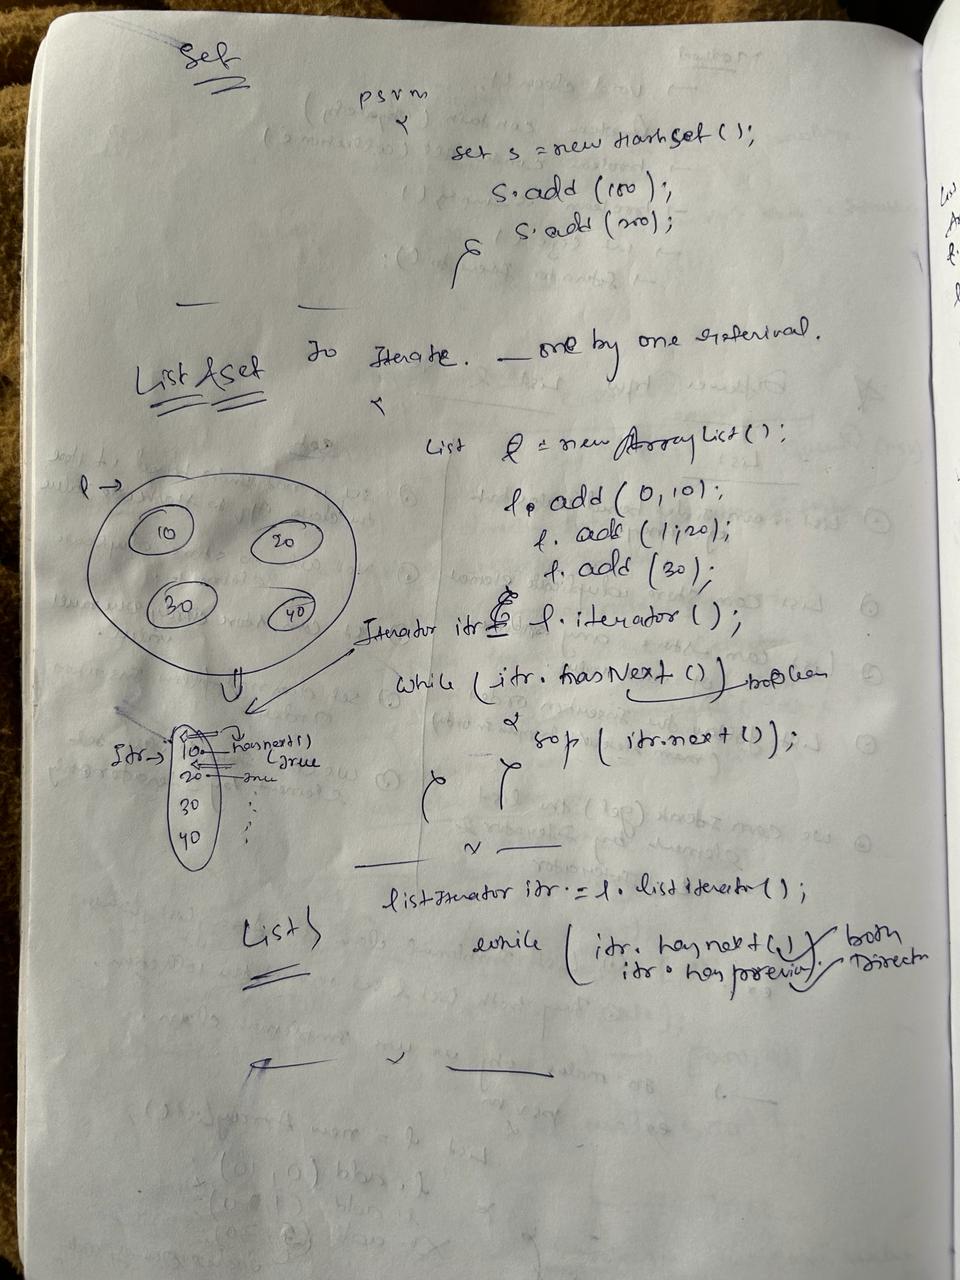 Set
psvm
{
Set s = new HashSet();
s.add (100);
s.add (200);
}
List & Set To Iterate. — one by one reterival.
{
List l = new ArrayList();
l →
l. add ( 0, 10);
l. add ( 1, 20);
l. add (30);
10 20
30 40
Iterator itr = l. iterator ();
while ( itr. hasNext ()) boolean
{
sop ( itr.next ());
} }
Itr → 10 hasnext()
(true
20 true
30
40
listIterator itr = l. listiterator();
List}
while ( itr. hasnext() both
itr. has previou) Directn